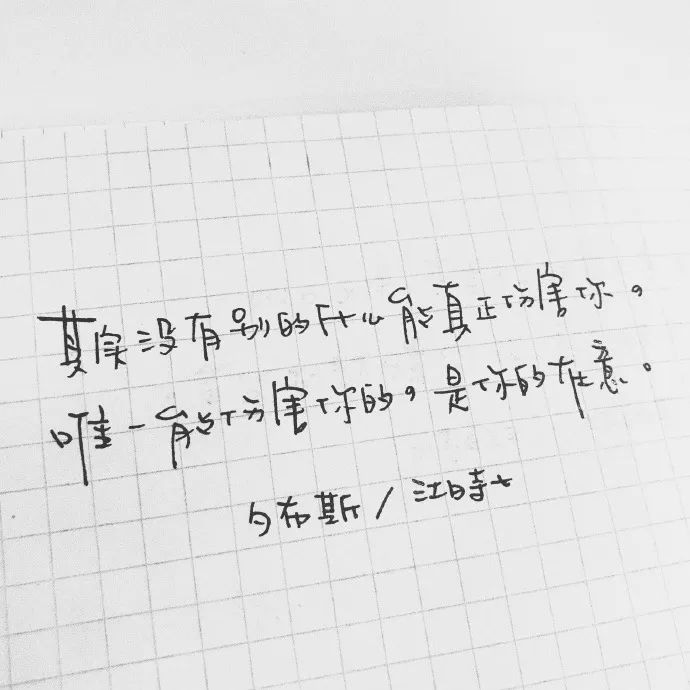 其实没有别的什么能真正伤害你。
唯一能伤害你的，是你的在意。
勺布斯 / 江時